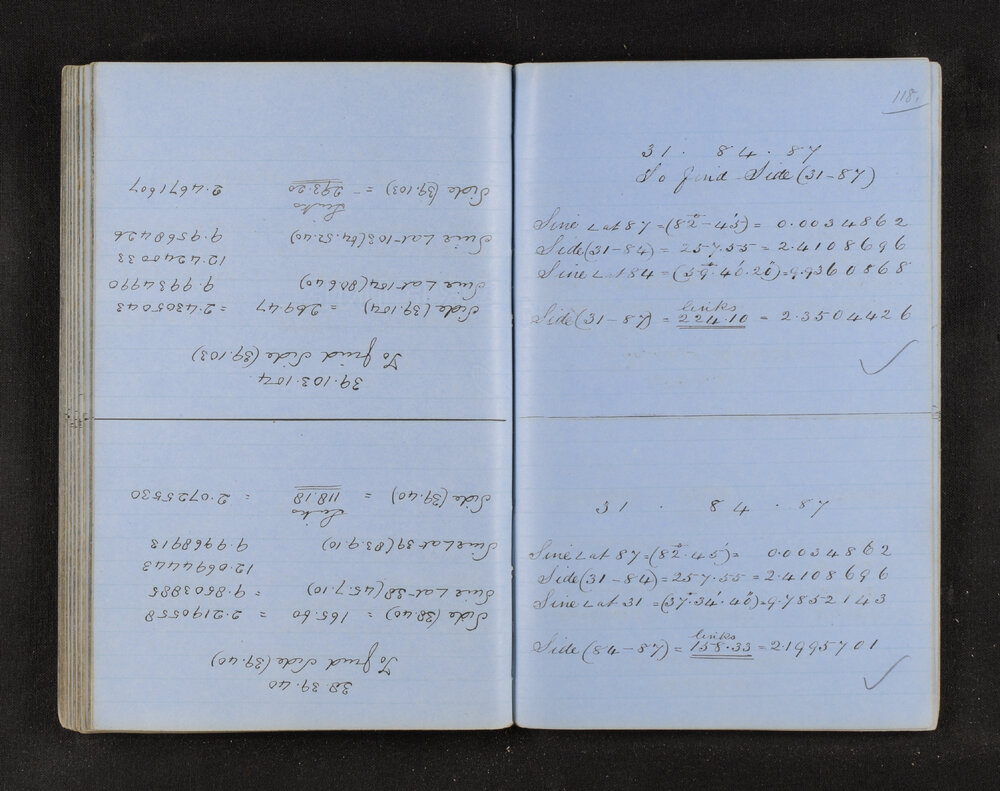 38.39.40
To find Side (39.40)
Side (38.40) = 165.60 = 2.2190558
Sine L at 38 (45.7.10) = 9.8503885
12.0694443
Sine L at 39 (83.9.10) 9.9968913
Links
Side (39.40) = 118.18 = 2.0725530
39.103.104
To find Side (39.103)
Side (39.104) = 269.47 = 2.4305043
Sine L at 104 (80.6.40) 9.9934990
12.4240033
Sine L at 103 (64.52.40) 9.9568426
Links
Side (39.103) = 293.20 2.4671607
118.
31 . 84 . 87
To find Side (31-87)
Sine L at 87 = (82°-45') = 0.0034862
Side (31-84) = 257.55 = 2.4108696
Sine L at 84 = (59°.40'.20") = 9.9360868
links
Side (31-87) = 224.10 = 2.3504426
31 . 84 . 87
Sine L at 87 = (82°.45') = 0.0034862
Side (31-84) = 257.55 = 2.4108696
Sine L at 31 = (37°.34'.40") = 9.7852143
links
Side (84-87) = 158.33 = 2.1995701